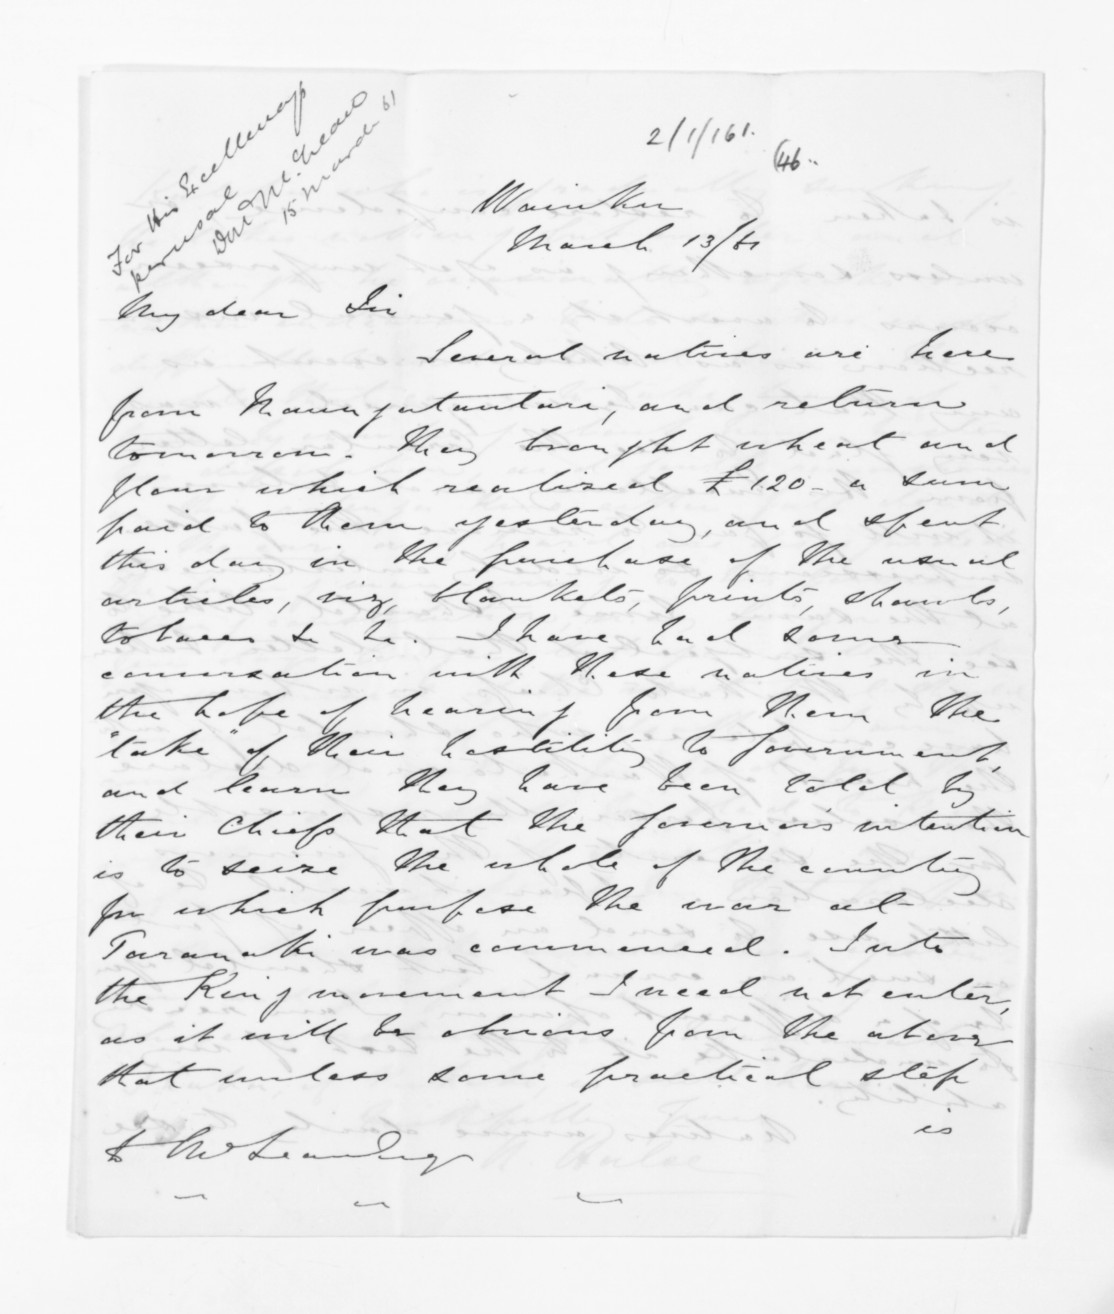 For His Excellency's
perusal
Don McLean
15 March 61
2/1/161.
46.
Waiuku
March 13/61
My dear Sir
Several natives are here
from Maungatautari, and return
tomorrow. They brought wheat and
flour which realized £120 - a sum
paid to them yesterday, and spent
this day in the purchase of the usual
articles, viz, blankets, prints, shawls,
tobacco &c &c. I have had some
conversation with these natives in
the hope of hearing from them the
"take" of their hostility to Government,
and learn they have been told by
their Chiefs that the Governor's intention
is to seize the whole of the country
for which purpose the war at
Taranaki was commenced. Into
the King movement I need not enter,
as it will be obvious from the above
that unless some practical step
is
D McLean Esq